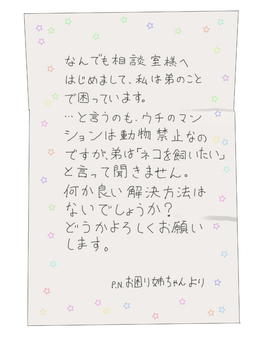 なんでも相談室様へ
はじめまして、私は弟のこと
で困っています。
…と言うのも、ウチのマン
ションは動物禁止なの
ですが、弟は「ネコを飼いたい」
と言って聞きません。
何か良い解決方法は
ないでしょうか？
どうかよろしくお願い
します。
P.N.お困り姉ちゃんより